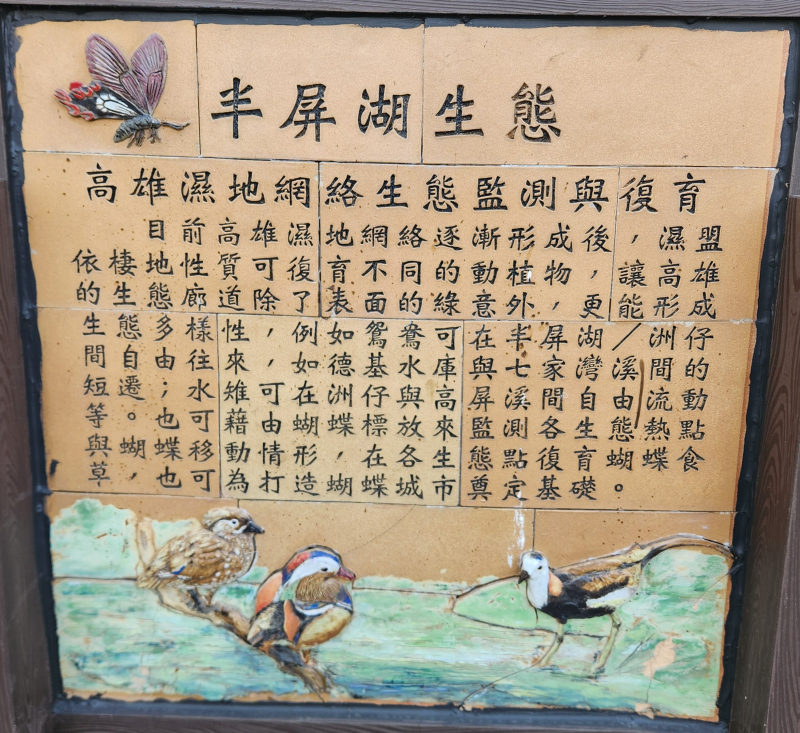 半屏湖生態
高雄濕地網絡生態監測與復育
目前高雄濕地網絡逐漸形成後,濕盟
依棲地性質可復育不同的動植物,讓高雄
的生態廊道除了表面的綠意外,更能形成
生態多樣性,例如鴛鴦可在半屏湖/洲仔
間自由往來,如德基水庫與七家灣溪間的
短遷;水雉可在洲仔與高屏溪間自由流動
等。也可藉由蝴蝶標放來監測各生態熱點
與蝴蝶移動情形,在各生態點復育蝴蝶食
草,也可為打造蝴蝶城市奠定基礎。